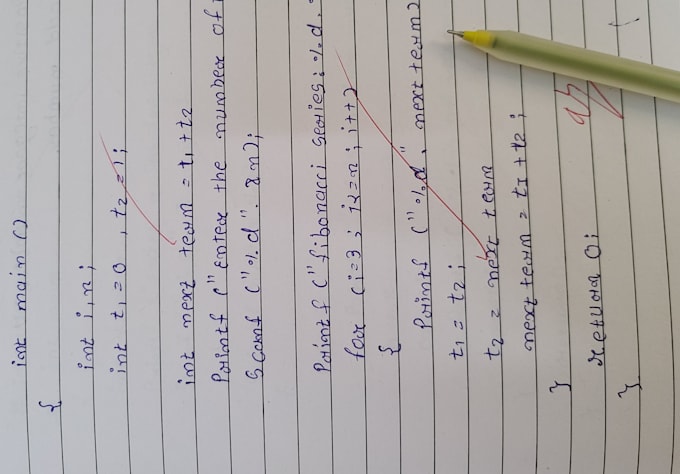 int main ()
{
int i, n;
int t1 = 0, t2 = 1;
int next term = t1 + t2
Printf ("enter the number of
Scanf ("%d". &n);
Printf ("fibonacci series: %d.
for (i=3; i<=n; i++)
{
Printf ("%d", next term)
t1 = t2;
t2 = next term
next term = t1 + t2;
}
return 0;
}